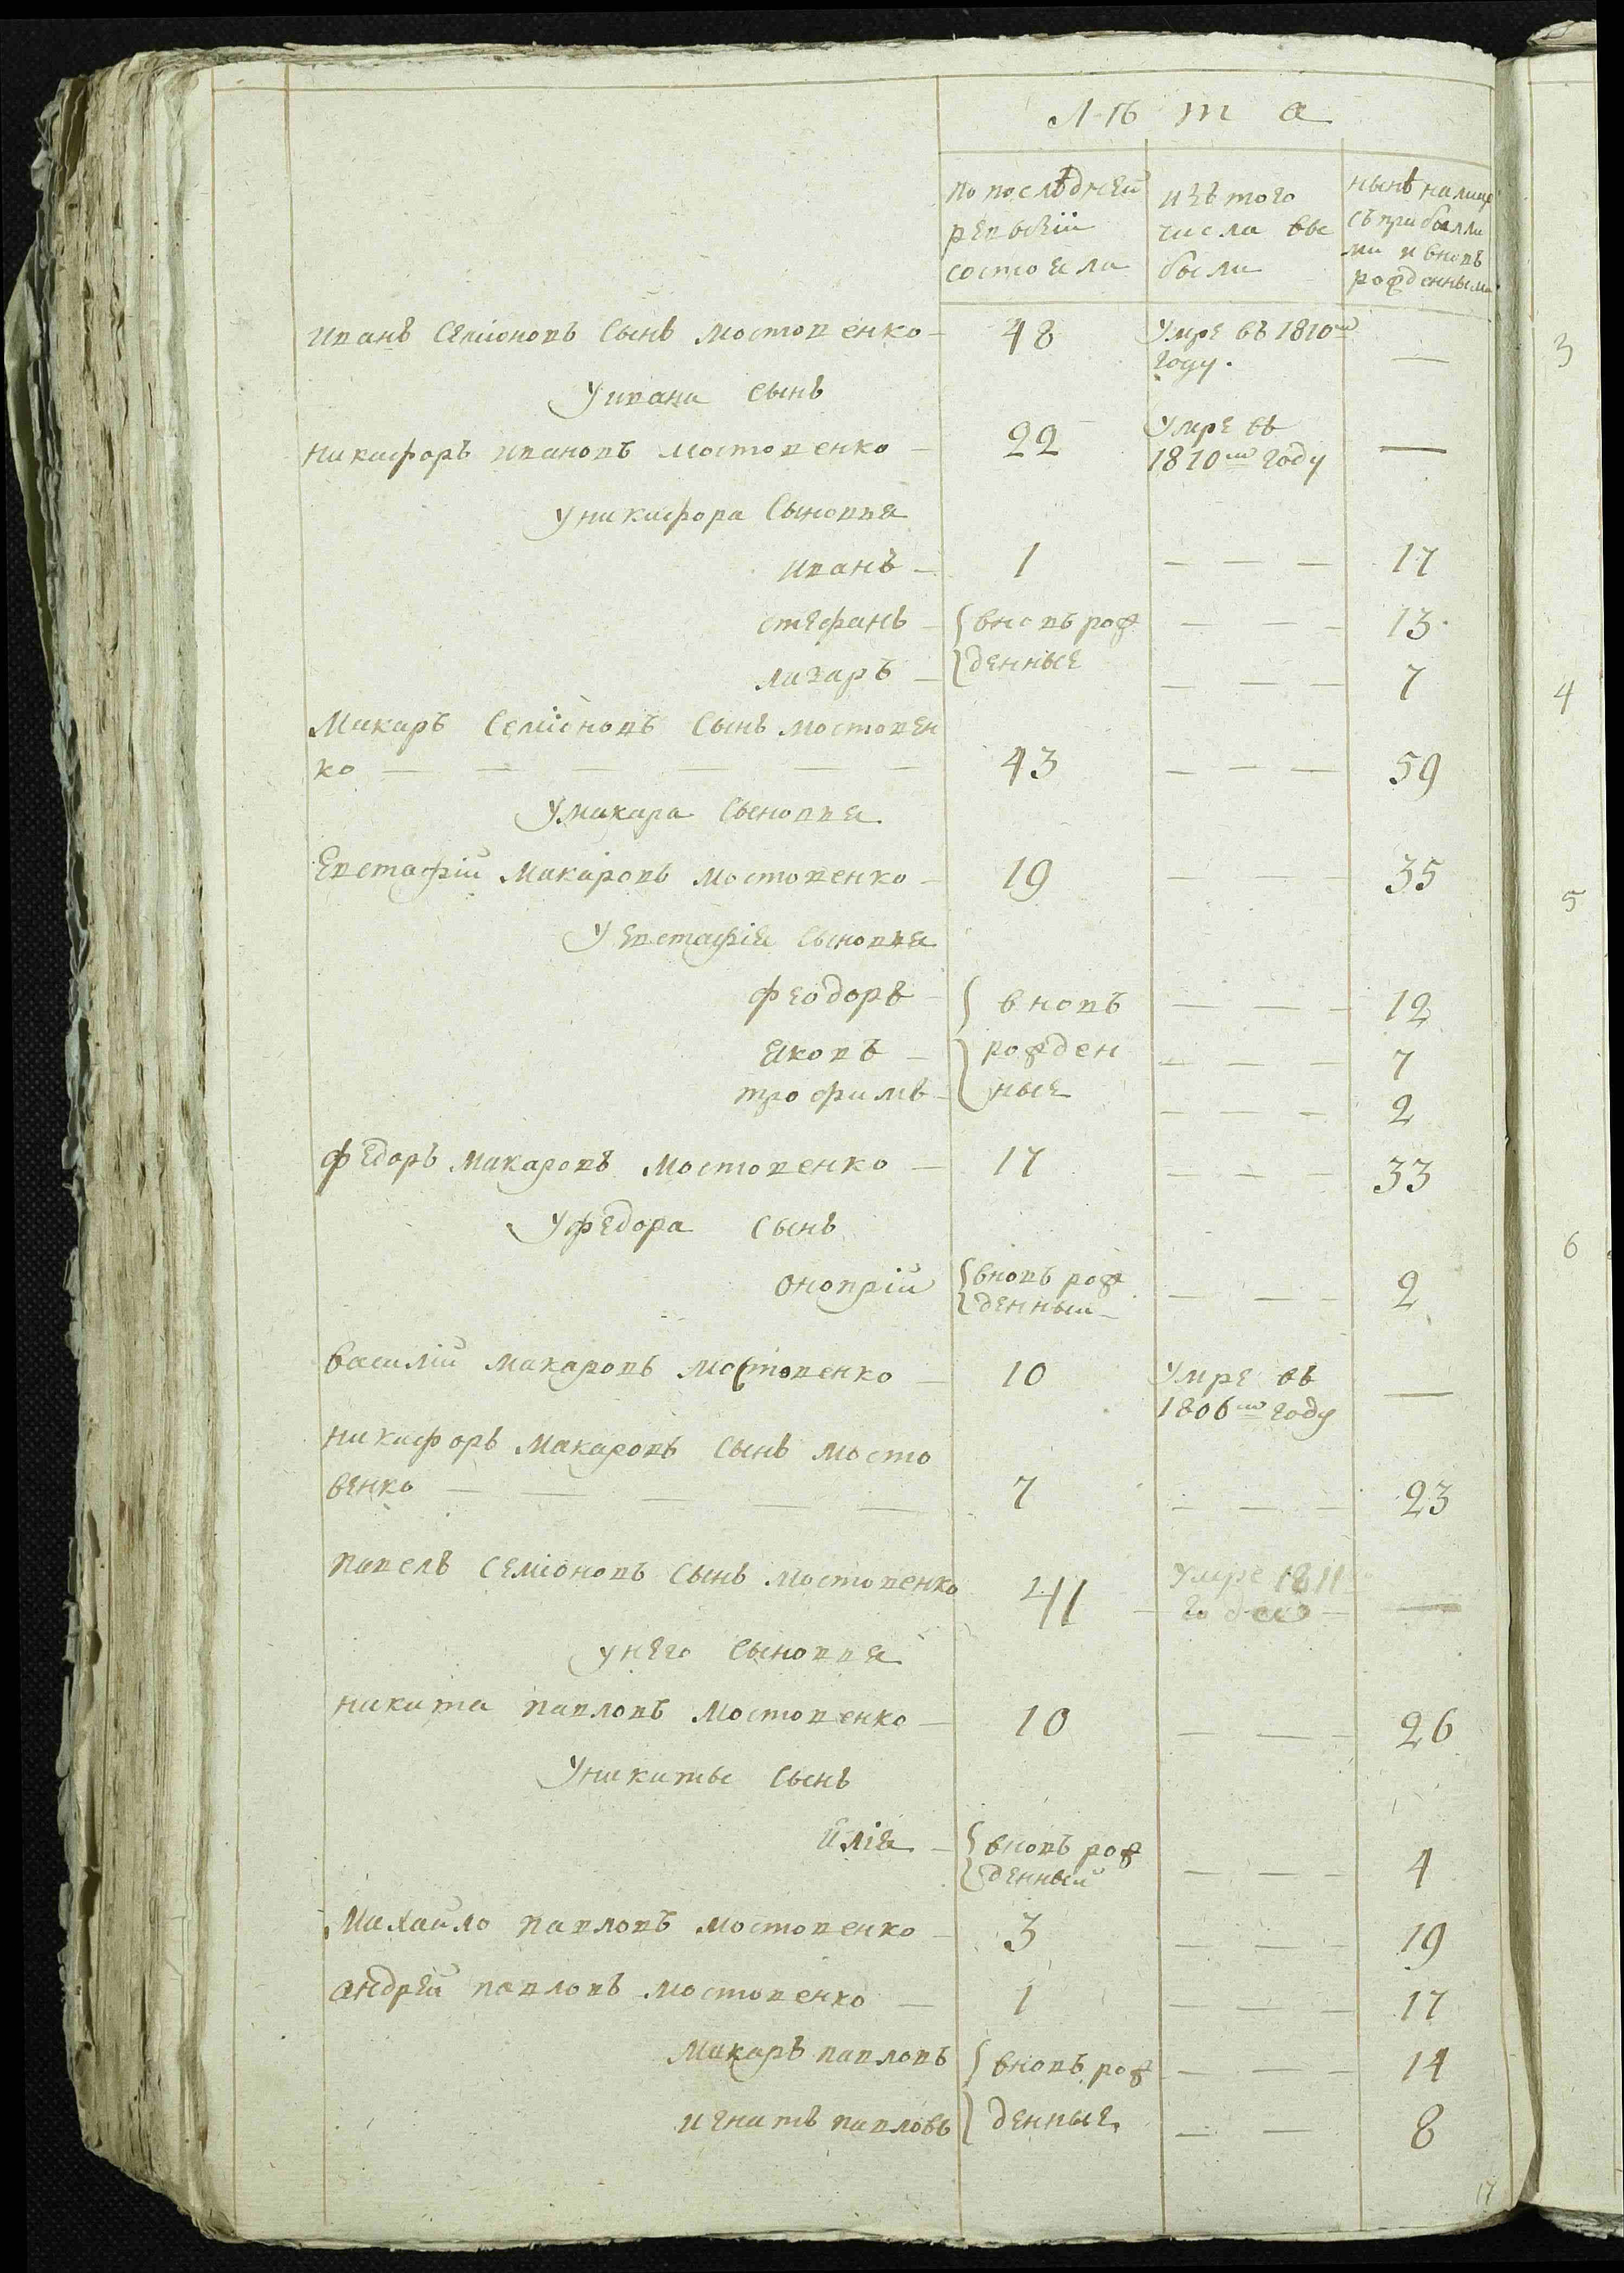 Лѣта
По послѣдней
ревизіи
состояло
изъ того
числа вы
были
нынѣ налице
съ прибылы
ми и вновь
рожденными
Иванъ Семіоновъ Сынъ Мостовенко – 48 Умре въ 1810мъ
году. —
У ивана сынъ
Никифоръ Ивановъ Мостовенко – 22 Умре въ
1810мъ году —
У никифора Сыновья
Иванъ – 1 — — — 17
Стефанъ – вновь рож — — — 13
Лазарь – денные — — — 7
Макаръ Семіоновъ Сынъ Мостовен
ко — — — — — — 43 — — — 59
У макара Сыновья
Евстафій Макаровъ Мостовенко – 19 — — — 35
У Евстафія Сыновья
Феодоръ – вновь — — — 12
Яковъ – рожден — — — 7
Трофимъ – ные — — — 2
Федоръ Макаровъ Мостовенко – 17 — — — 33
У федора Сынъ
Оноприй вновь рож
денный – — — — 2
Василій Макаровъ Мостовенко – 10 Умре въ
1806мъ году —
Никифоръ Макаровъ Сынъ Мосто
венко — — — — — 7 — — — 23
Павелъ Семіоновъ Сынъ Мостовенко 41 Умре 1811
года —
У него Сыновья
Никита Павловъ Мостовенко – 10 — — — 26
У никиты Сынъ
Илія – вновь рож
денный — — — 4
Михайло Павловъ Мостовенко – 3 — — — 19
Андрей Павловъ Мостовенко – 1 — — — 17
Макаръ Павловъ вновь рож — — — 14
Игнатъ Павловъ денные — — 8
17
3
4
5
6